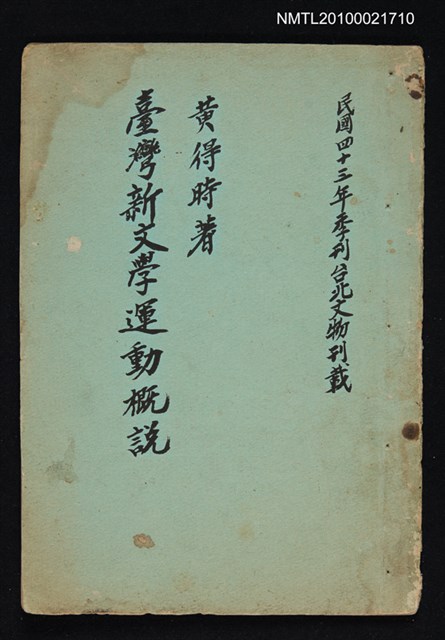 NMTL20100021710
民國四十三年季刊台北文物刊載
黃得時著
臺灣新文學運動概説